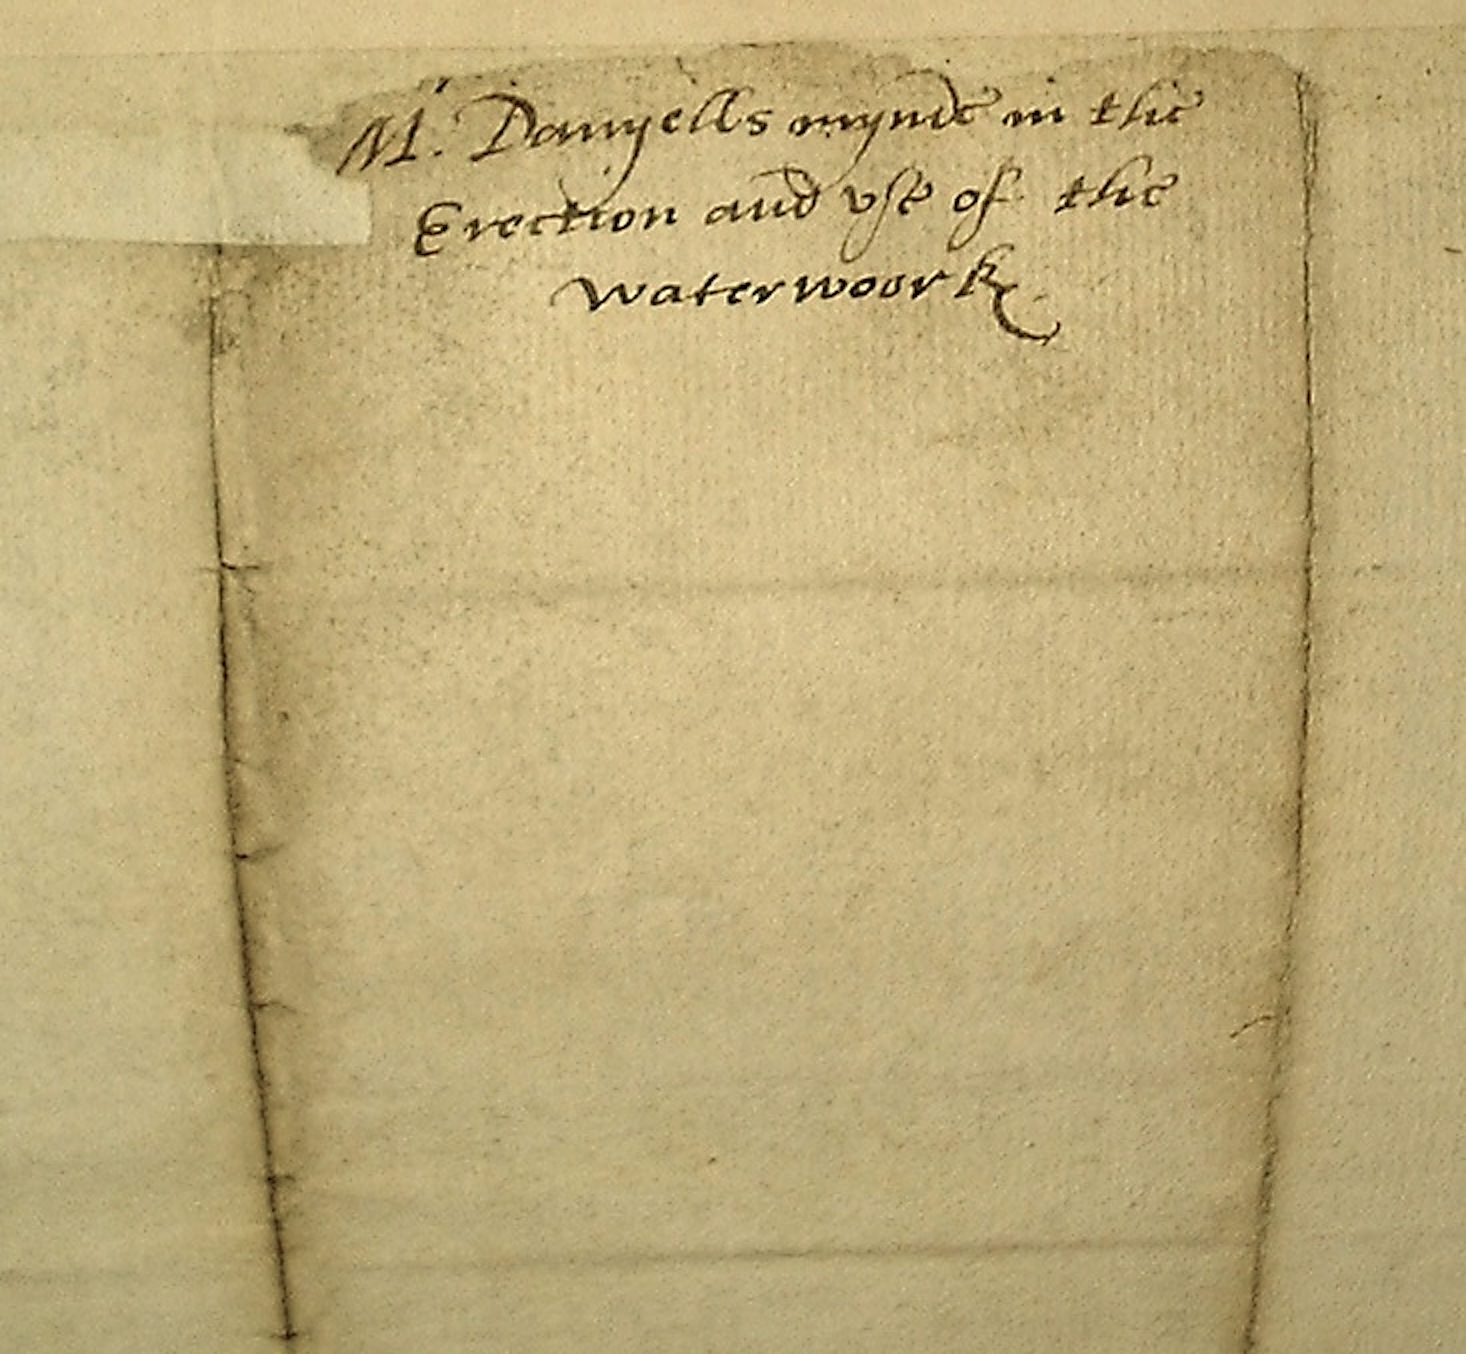 Mr. Danyells mynde in the
Erection and vse of the
waterwoork